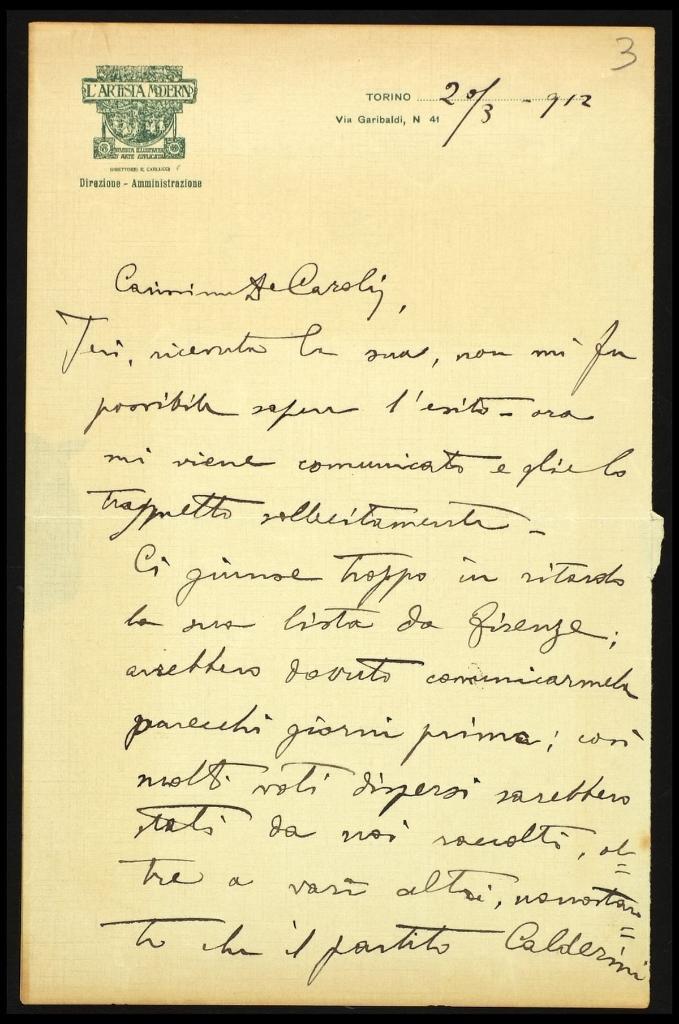 3
L'ARTISTA MODERNO
RIVISTA ILLUSTRATA
D'ARTE APPLICATA
DIRETTORE: R. CARLUCCI
Direzione - Amministrazione
TORINO 20/3 - 912
Via Garibaldi, N 41
Carissimo De Carolis,
Ieri, ricevuta la sua, non mi fu
possibile sapere l'esito - ora
mi viene comunicato e glielo
trasmetto sollecitamente -
Ci giunse troppo in ritardo
la sua lista da Firenze;
avrebbero dovuto comunicarmela
parecchi giorni prima; così
molti voti dispersi sarebbero
stati da noi raccolti, ol=
tre a varii altri, nonostan=
te che il partito Calderini